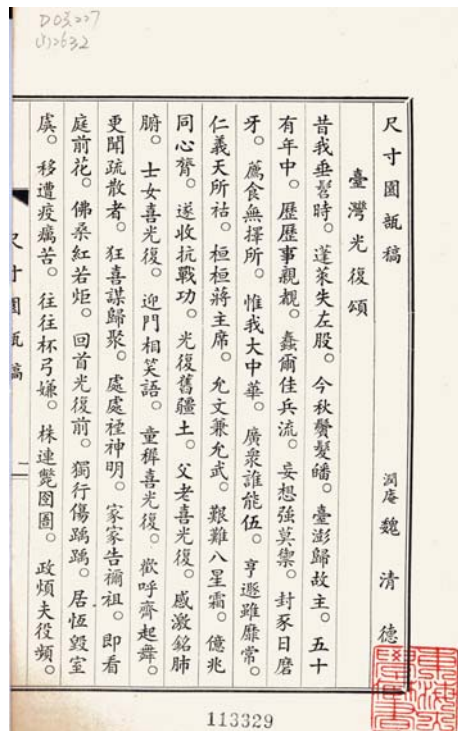 尺寸園瓻稿　潤庵　魏清德
臺灣光復頌
昔我垂髫時。蓬萊失左股。今秋鬢髮皤。臺澎歸故主。五十
有年中。歷歷事親覩。蠢爾佳兵流。妄想強莫禦。封豕日磨
牙。薦食無擇所。惟我大中華。廣衆誰能伍。亨遯雖靡常。
仁義天所祜。桓桓蔣主席。允文兼允武。艱難八星霜。億兆
同心膂。遂收抗戰功。光復舊疆土。父老喜光復。感激銘肺
腑。士女喜光復。迎門相笑語。童穉喜光復。歡呼齊起舞。
更聞疏散者。狂喜謀歸聚。處處禋神明。家家告禰祖。即看
庭前花。佛桑紅若炬。回首光復前。獨行傷踽踽。居恆毀室
虞。移遭疫癘苦。往往杯弓嫌。株連斃囹圄。政煩夫役頻。
尺寸園瓻稿
113329